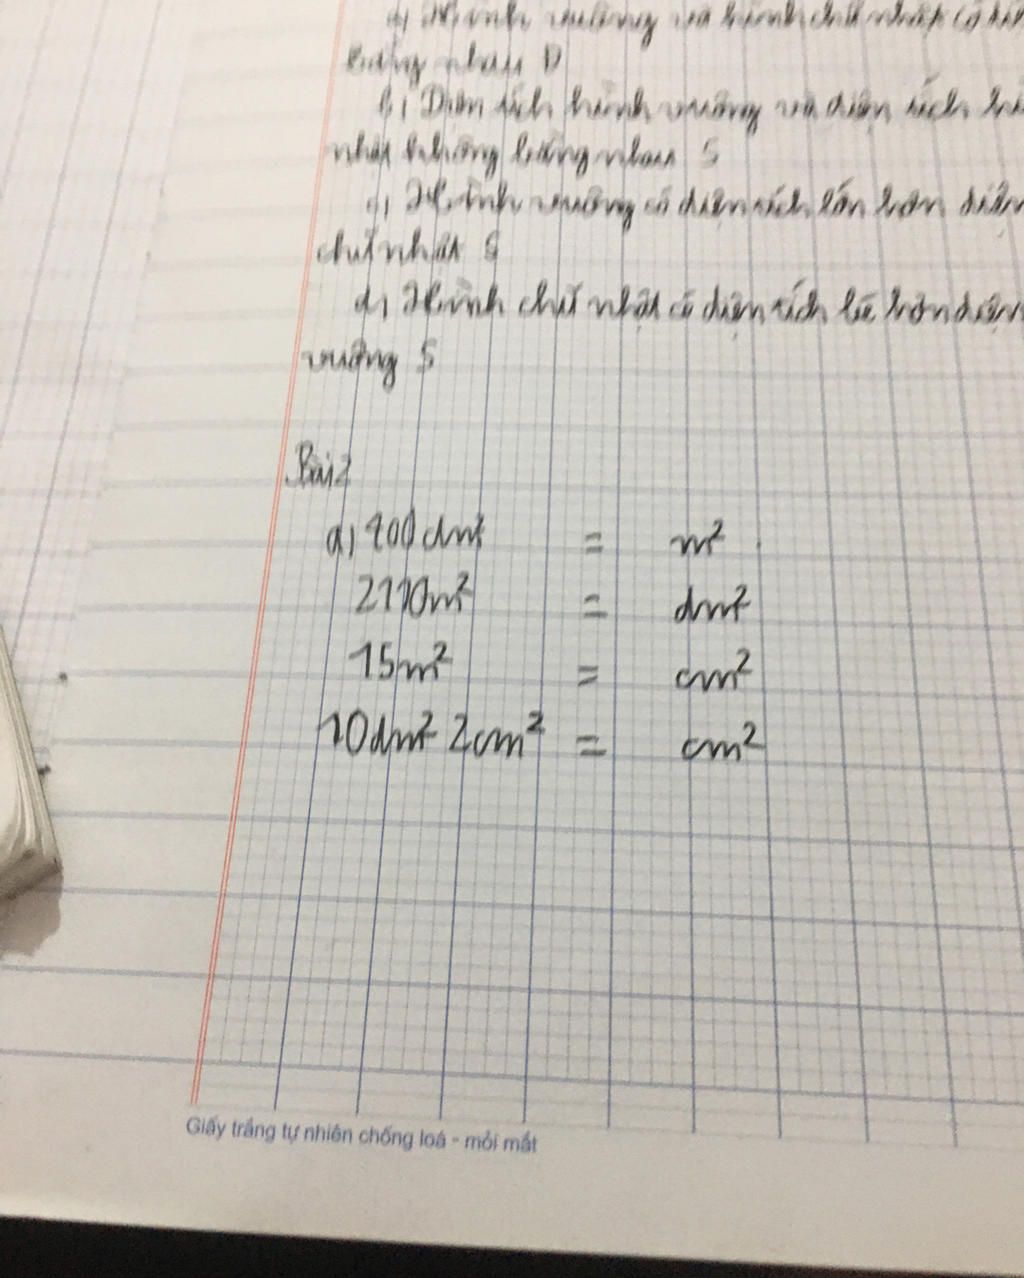 a) Hình vuông và hình chữ nhật có
bằng nhau Đ
b) Diện tích hình vuông và diện tích
nhật không bằng nhau S
c) Hình vuông có diện tích lớn hơn diện
chữ nhật S
d) Hình chữ nhật có diện tích bé hơn diện
vuông S
Bài 2
a) 400dm² = m²
2110m² = dm²
15m² = cm²
10dm² 2cm² = cm²
Giấy trắng tự nhiên chống loá - mỏi mắt